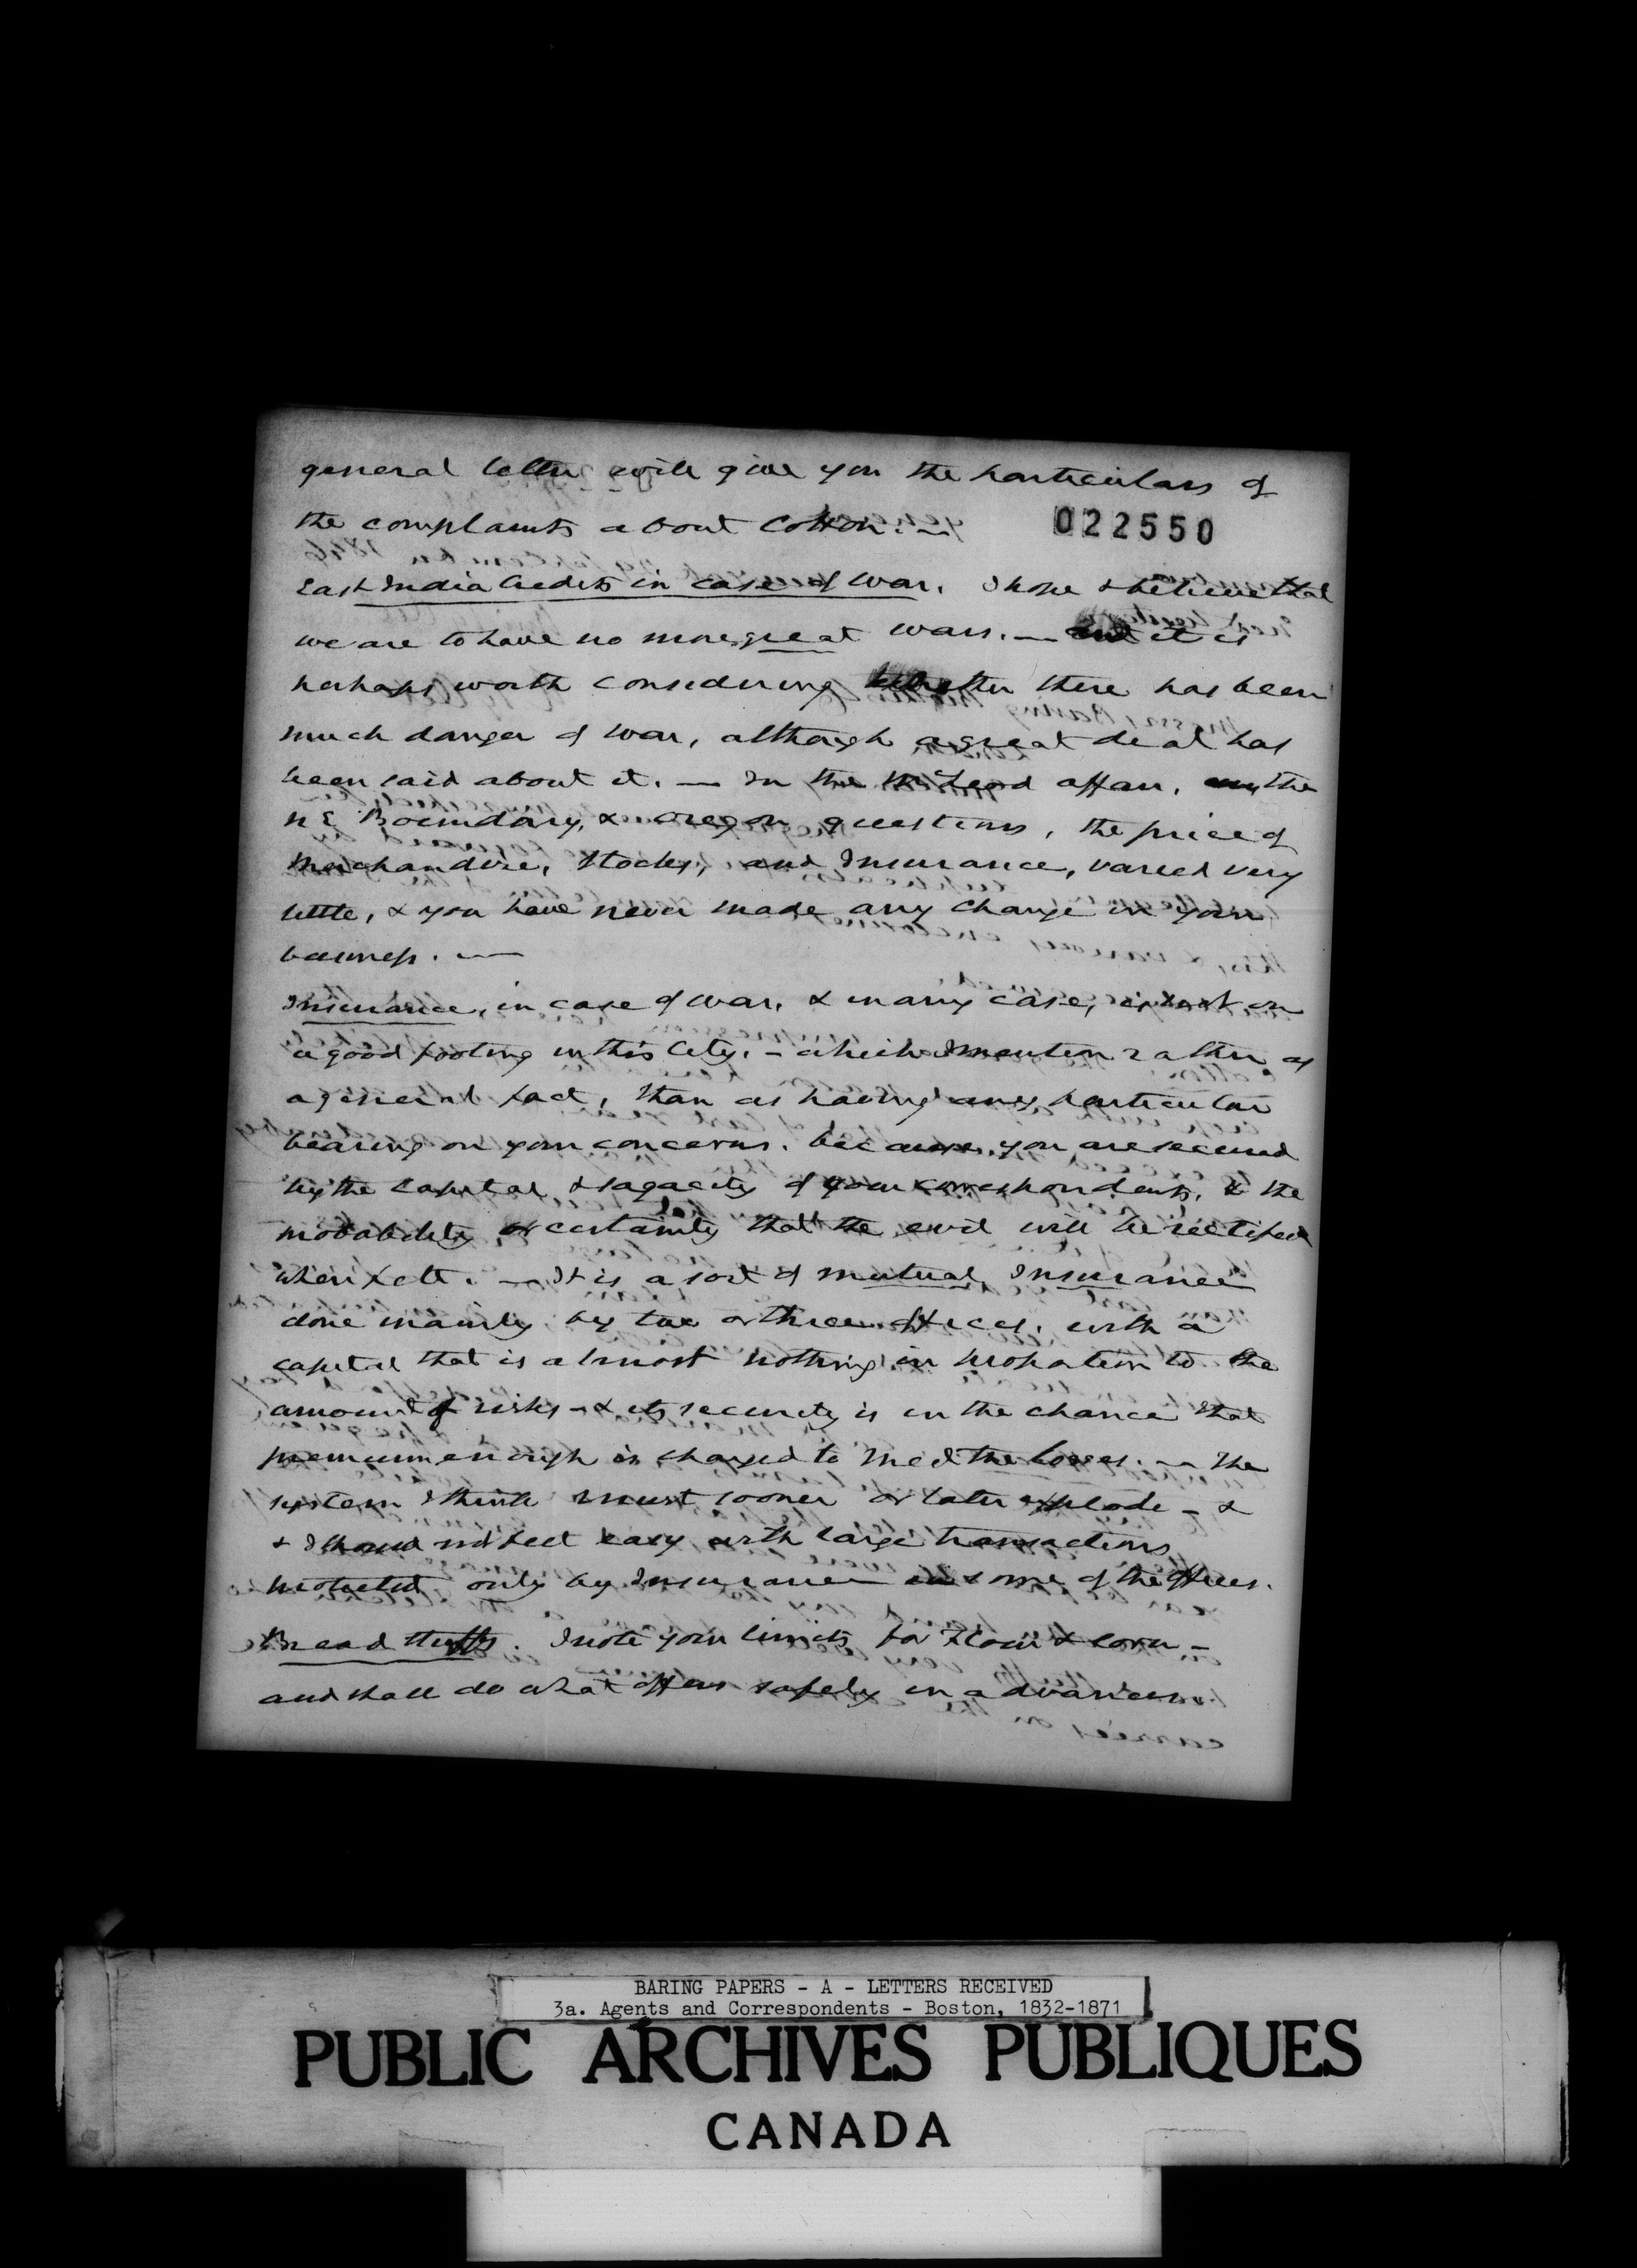 general letter will give you the particulars of
the complaints about Cotton. —
022550
East India Credits in case of War. I hope & believe that
we are to have no more great wars. — and it is
perhaps worth considering whether there has been
much danger of War, although a great deal has
been said about it. — In the McLeod affair, the
N E Boundary, & Oregon questions, the price of
Merchandize, Stocks, and Insurance, varied very
little, & you have never made any change in your
business. —
Insurance, in case of War, & in any case, is not on
a good footing in this City. — which I mention rather as
a general fact, than as having any particular
bearing on your concerns. because you are secured
by the Capital & sagacity of your correspondents, & the
probability or certainty that the evil will be rectified
when felt. — It is a sort of mutual Insurance
done mainly by two or three offices. with a
capital that is almost nothing in proportion to the
amount of risks — & its security is in the chance that
premium enough is charged to meet the losses. — The
system I think must sooner or later explode — &
& I should not feel easy with large transactions
protected only by Insurance in some of the offices.
Bread stuffs. I note your limits for Flour & Corn —
and shall do what offers safely in advances
BARING PAPERS - A - LETTERS RECEIVED
3a. Agents and Correspondents - Boston, 1832-1871
PUBLIC ARCHIVES PUBLIQUES
CANADA